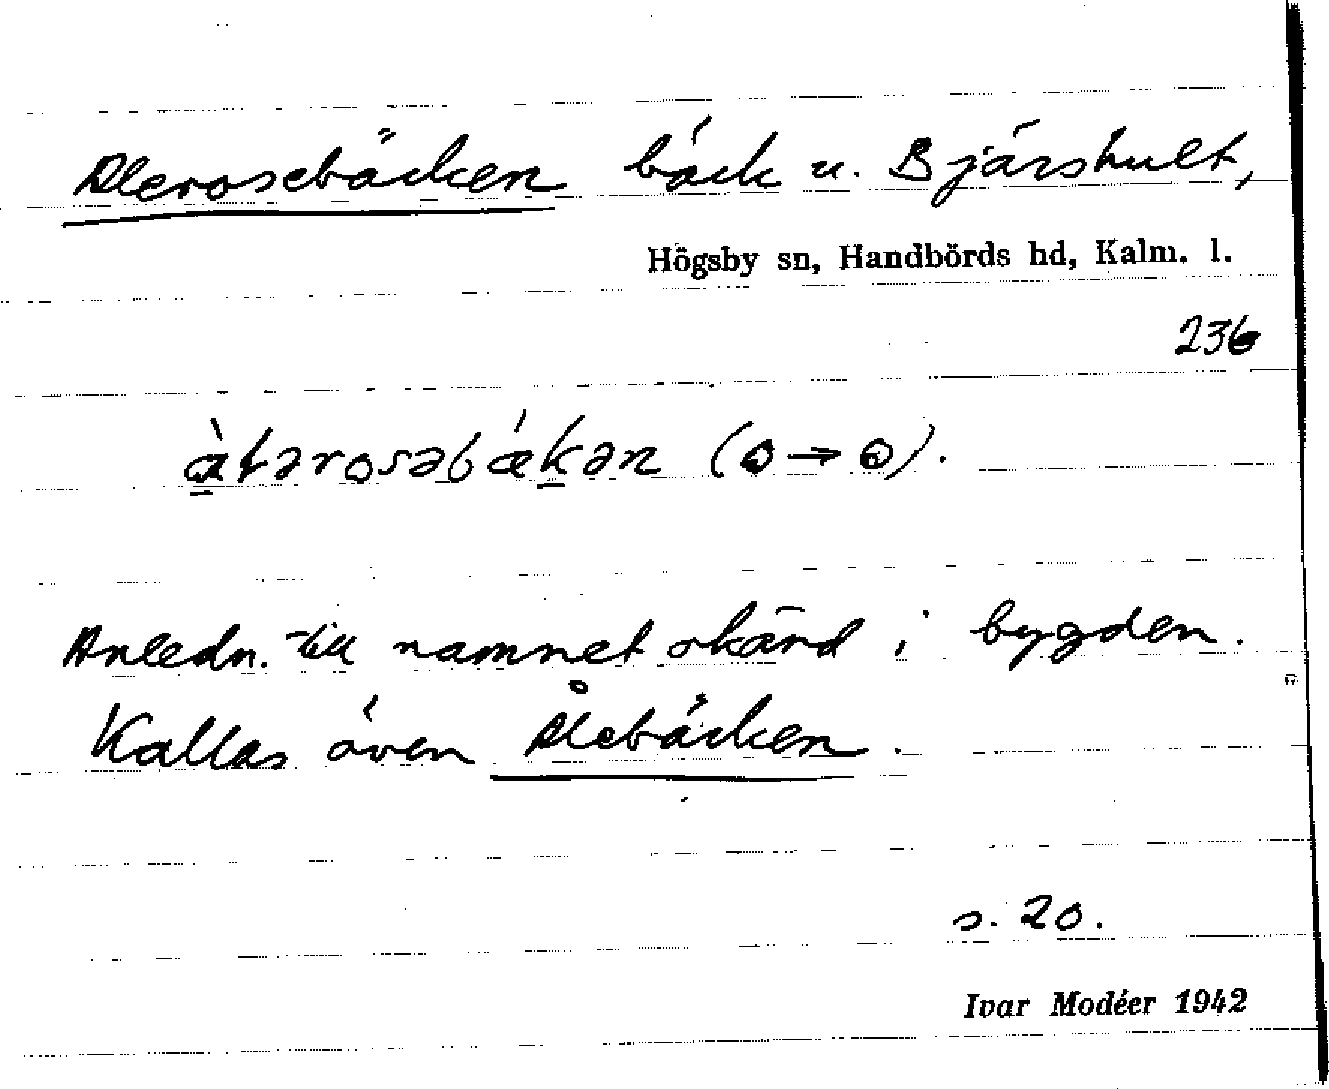 Alerosebäcken bäck u. Bjärshult,
Högsby sn, Handbörds hd, Kalm. l.
236
à̱ɫərosəbǽḵən (o → o).
Anledn. till namnet okänd i bygden.
Kallas även Ålebäcken.
s. 20.
Ivar Modéer 1942